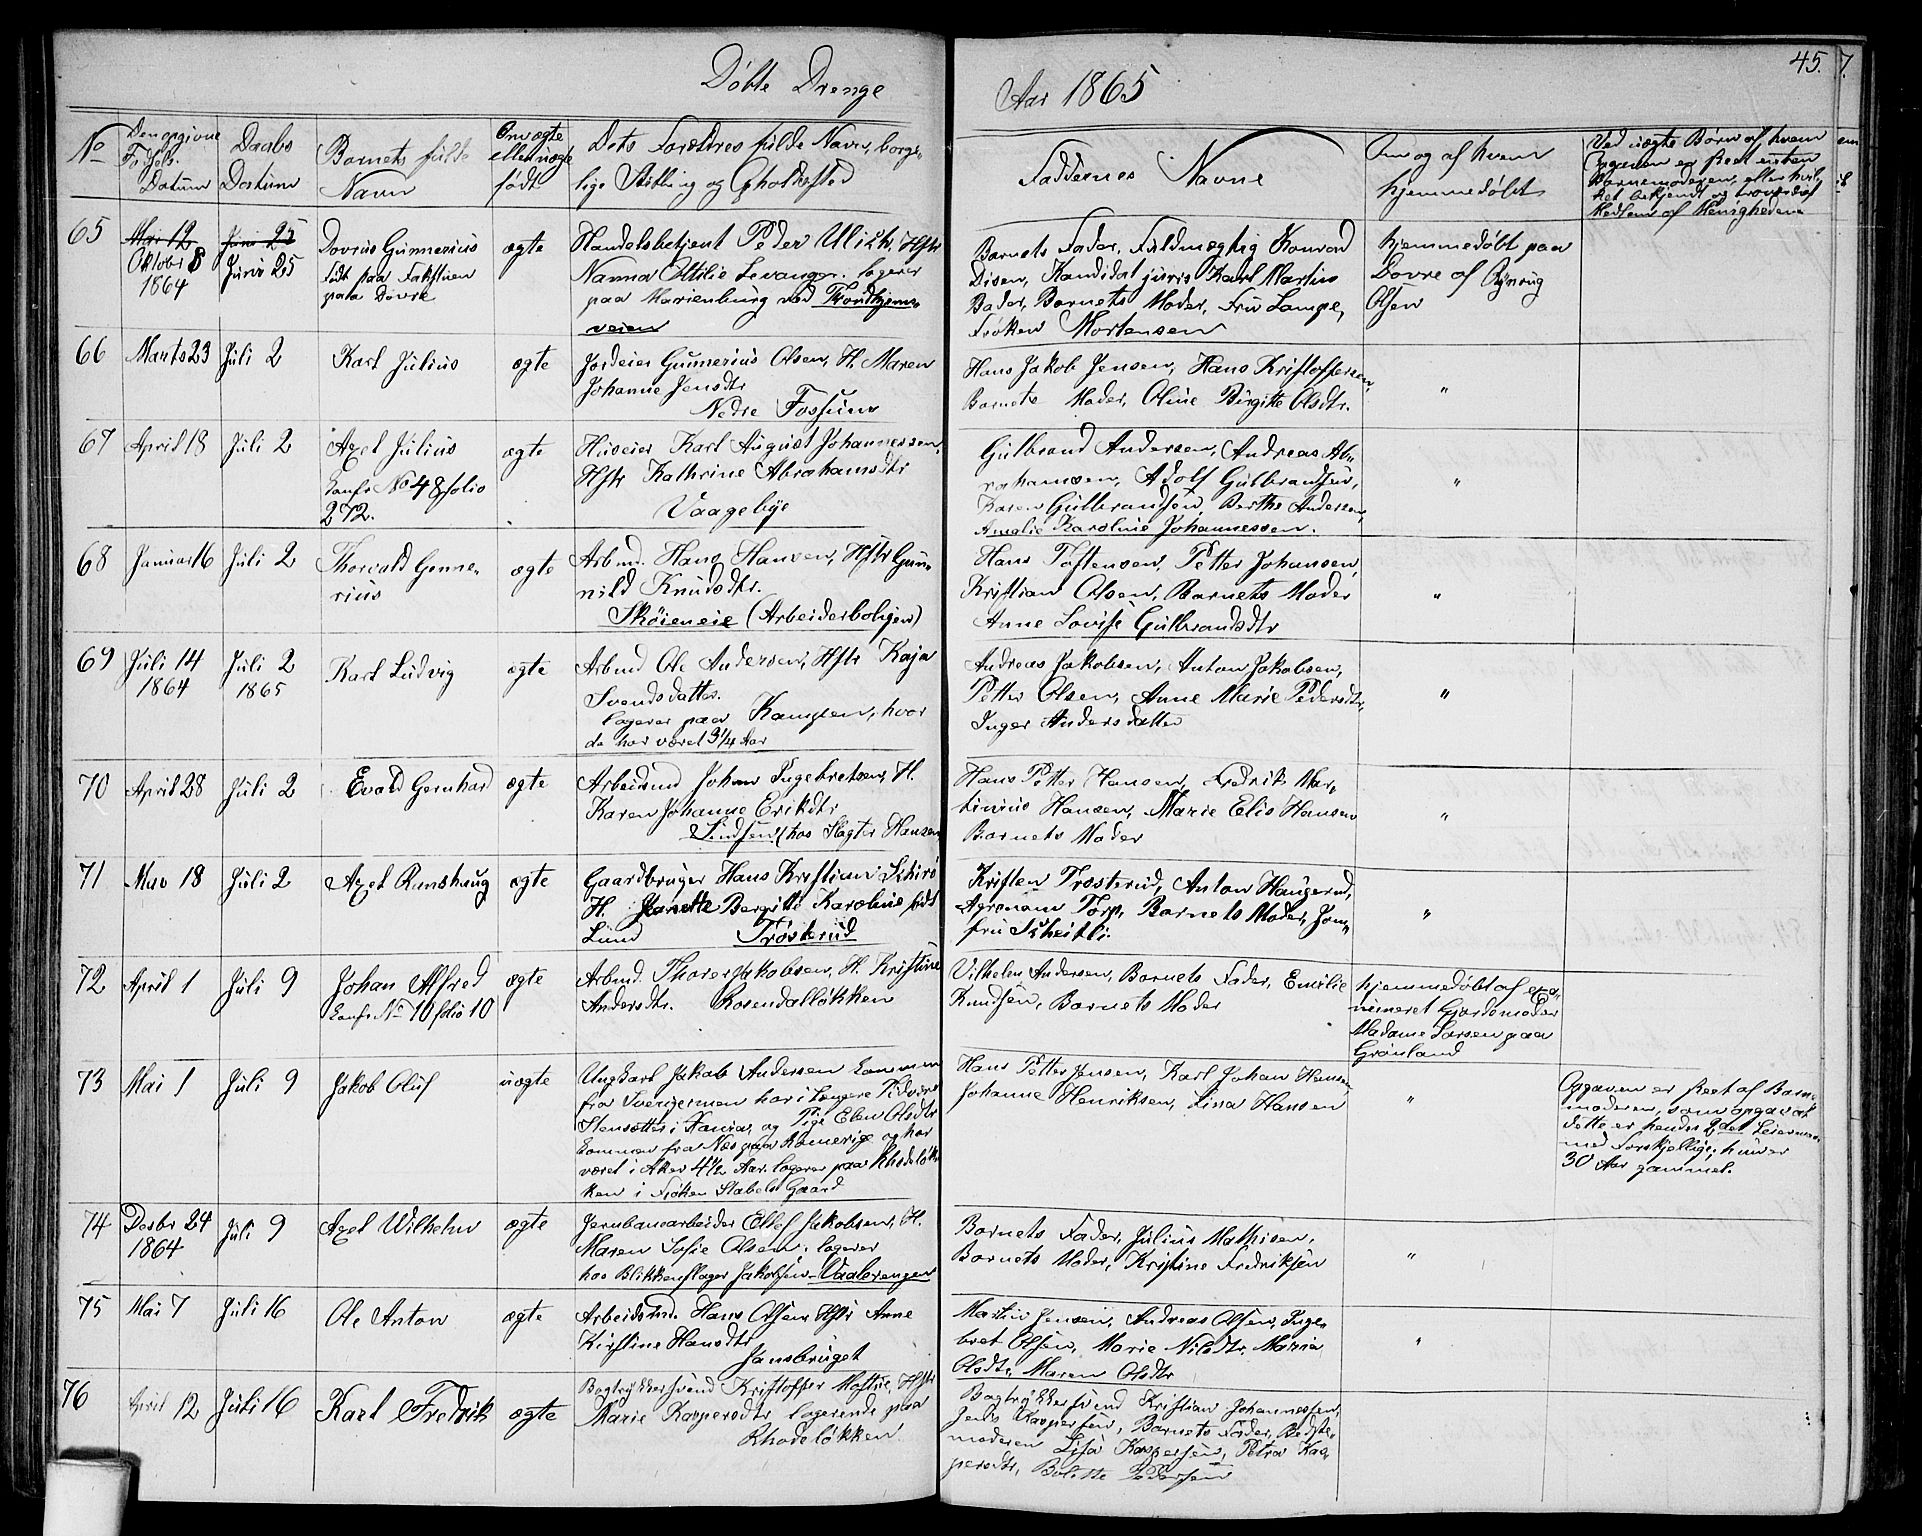 Døbte Drenge
Aar 1865
45.
7.
No
Den opgivne
Fødsels-
Datum
Daabs
Datum
Barnets fulde
Navn
Om ægte
eller uægte
født
Dets Forældres fulde Navn, borger-
lige Stilling og Opholdssted
Faddernes Navne
Om og af hvem
hjemmedøbt
Ved uægte Børn af hvem
Opgaven er skeet enten
Barnemoderen, eller hvil-
ket bekjendt og troværdigt
Medlem af Menigheden
65
Mai 12
Oktober 8
1864
Juni 25
Juni 25
Dovrius Gunnerius
født paa Fokstuen
paa Dovre
ægte
Handelsbetjent Peder Ulich, Hstr
Nanna Ottilie Levanger. logerer
paa Marienburg ved Trondhjems-
veien
Barnets Fader, Fuldmægtig Konrad
Disen, Kandidat juris Karl Martius
Bader, Barnets Moder, Fru Lampe,
Frøken Mortensen
hjemmedøbt paa
Dovre af
Olsen
66
Marts 23
Juli 2
Karl Julius
ægte
Jordeier Gunnerius Olsen, H. Maren
Johanne Jensdtr
Nedre Fossum
Hans Jakob Jensen, Hans Kristoffersen,
Barnets Moder, Oline Birgitte Olsdtr.
"
67
April 18
Juli 2
Axel Julius
Konf. No 48 folio
272.
ægte
Huseier Karl August Johannessen,
Hstr Kathrine Abrahamsdtr
Vaagebye
Gulbrand Andersen, Andreas Ab-
rahamsen, Adolf Gulbrandsen,
Karen Gulbrandsen, Berthe Andersen,
Amalie Karoline Johannessen.
"
68
Januar 16
Juli 2
Thorvald Gunne-
rius
ægte
Arbmd. Hans Hansen, Hstr Gun-
nild Knudsdtr.
Skøieneie (Arbeiderboligen)
Hans Toftensen, Petter Johansen,
Kristian Olsen, Barnets Moder
Anne Lovise Gulbrandsdtr
"
69
Juli 14
1864
Juli 2
1865
Karl Ludvig
ægte
Arbmd Ole Andersen, Hstr Kaja
Svendsdatter.
logerer paa Kampen, hvor
de har været 3/4 Aar
Andreas Jakobsen, Anton Jakobsen,
Petter Olsen, Anne Marie Pedersdtr,
Inger Andersdatter
"
70
April 28
Juli 2
Evald Gernhard
ægte
Arbeidsmd Johan Ingebretsen, H.
Karen Johanne Eriksdtr
(hos Slagter Hansen
Hans Petter Hansen, Fredrik Mar-
tinius Hansen, Marie Elis Hansen
Barnets Moder
"
71
Mars 18
Juli 2
Axel Runshaug
ægte
Gaardbruger Hans Kristian Schirø
H. Jeanette Bergitte Karoline født
Lund Trosterud
Kristen Trosterud, Anton Haugerud,
Agronom Torp, Barnets Moder, Jom-
fru Scheitli.
"
72
April 1
Juli 9
Johan Alfred
Konf. No 10 folio 10
ægte
Arbmd. Thorer Jakobsen, H. Kristine
Andersdtr. Rosendalløkken
Vilhelm Andersen, Barnets Fader, Emilie
Knudsen, Barnets Moder
hjemmedøbt af exa-
mineret Gjordemoder
Madame Larsen paa
Grønland
73
Mai 1
Juli 9
Jakob Oluf
uægte
Ungkarl Jakob Andersen kommen
fra Sverige men har i længere Tid været
Stensætter i Xania, og Pige Elen Olsdtr
kommen fra Næs paa Romerige og har
været i Aker 4½ Aar. logerer paa Rhodeløk-
ken i Frøken Stabels Gaard
Hans Petter Jensen, Karl Johan Hansen,
Johanne Henriksen, Lina Hansen
"
Opgaven er skeet af Barne-
moderen, som opgav at
dette er hendes 2det Leiermaal
med Forskjellige; hun er
30 Aar gammel.
74
Desbr 24
1864
Juli 9
Axel Wilhelm
ægte
Jernbanearbeider Ellef Jakobsen, H.
Maren Sofie Olsen. logerer
hos Blikkenslager Jakobsen Vaalerengen
Barnets Fader, Julius Mathisen,
Barnets Moder, Kristine Fredriksen
"
75
Mai 7
Juli 16
Ole Anton
ægte
Arbeidsmd. Hans Olsen Hstr Anne
Kirstine Hansdtr
Jansbruget
Martin Jensen, Andreas Olsen, Inge-
bret Olsen, Marie Nilsdtr, Maria
Olsdtr, Maren Olsdtr
"
76
April 12
Juli 16
Karl Fredrik
ægte
Bogtrykkersvend Kristoffer Hostvet, Hstr
Marie Kaspersdtr logerende paa
Rhodeløkken
Bogtrykkersvend Kristian Johannessen,
Jens Kaspersen, Barnets Fader, Bedste-
moderen Lisa Kaspersen, Petra Kas-
persdtr, Bolette Pedersen